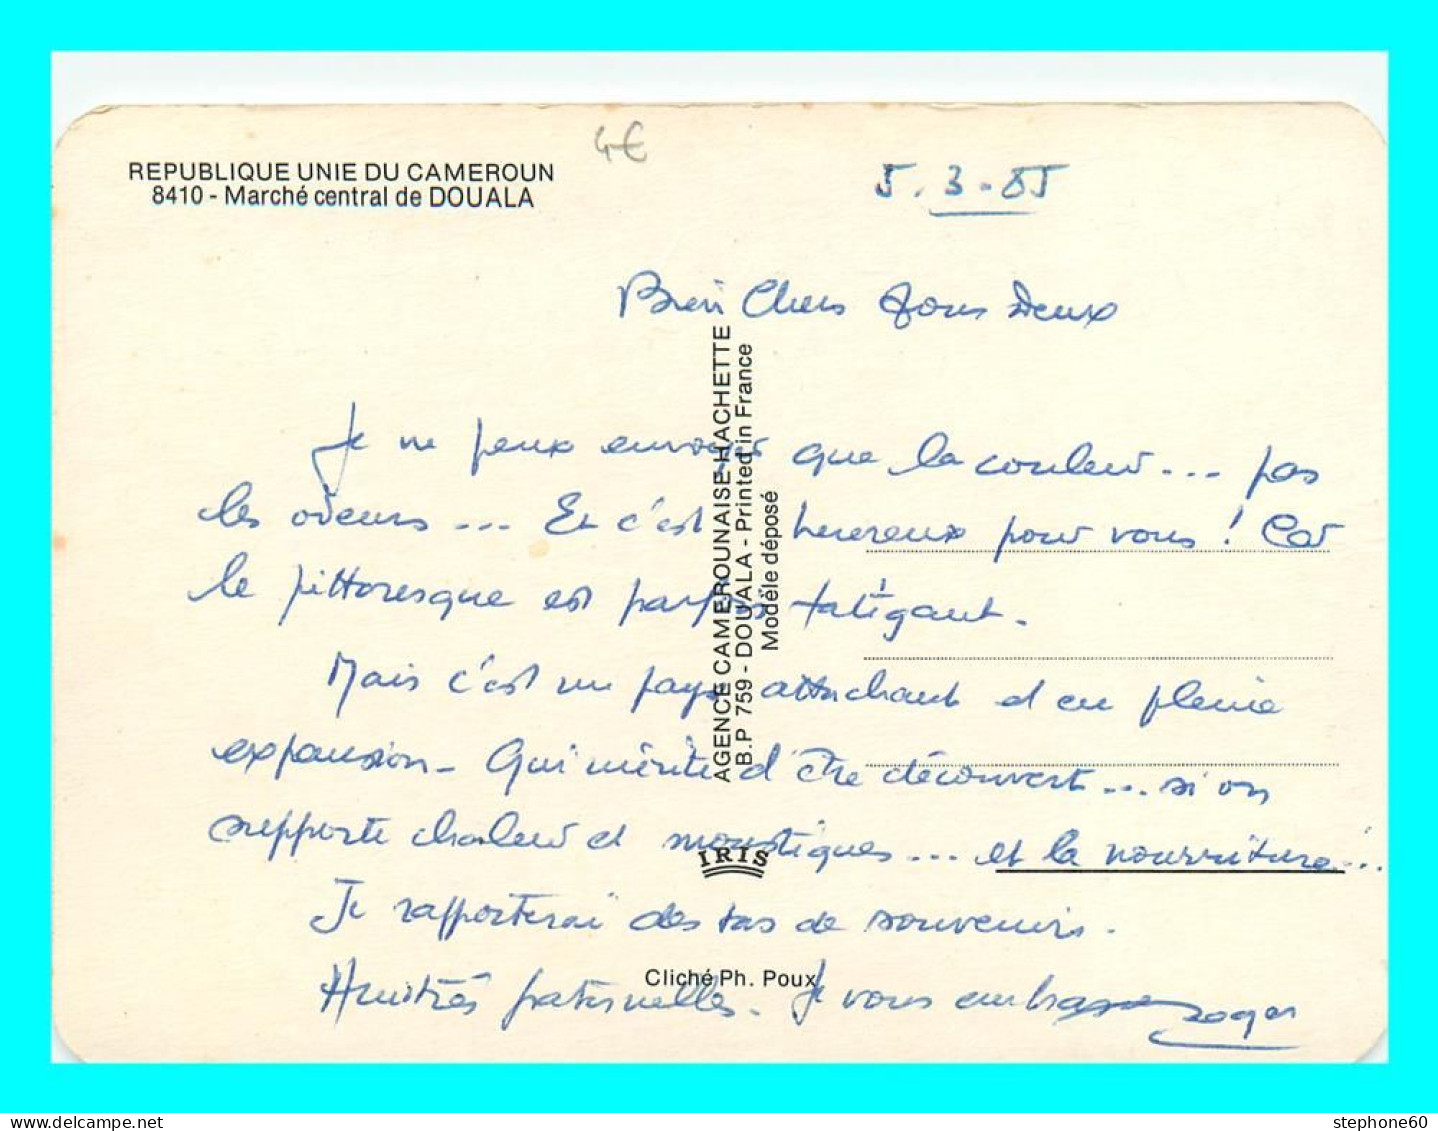 4€
REPUBLIQUE UNIE DU CAMEROUN
8410 - Marché central de DOUALA
5.3.85
Bien Chers tous Deux
Je ne peux envoyer que la couleur... pas
les odeurs... Et c'est heureux pour vous ! Car
le pittoresque est parfois fatigant.
Mais c'est un pays attachant et en pleine
expansion - Qui mérite d'être découvert... si on
supporte chaleur et moustiques... et la nourriture !...
Je rapporterai des tas de souvenirs.
Amitiés fraternelles. Je vous embrasse
Roger
AGENCE CAMEROUNAISE HACHETTE
B.P 759 - DOUALA - Printed in France
Modèle déposé
IRIS
Cliché Ph. Poux
stephone60